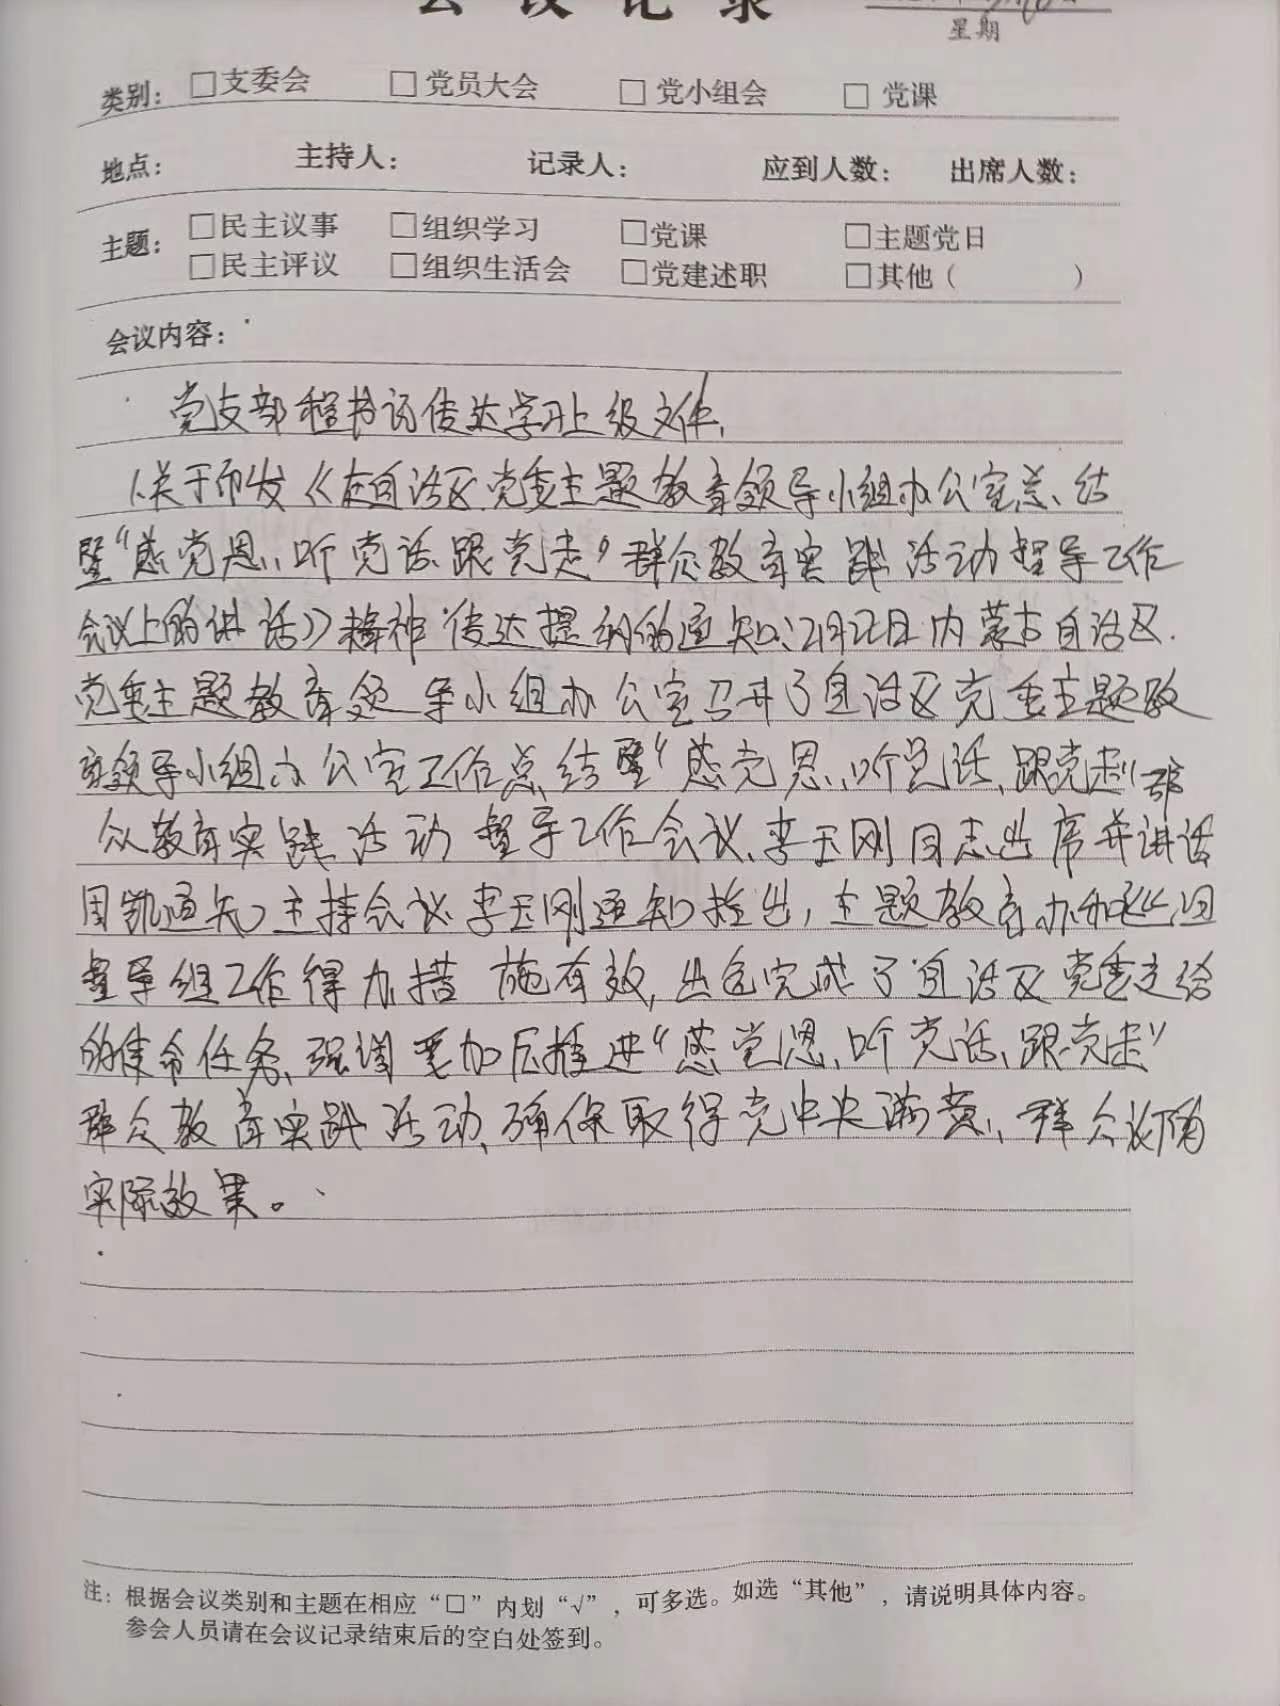 会议记录
星期
类别： □支委会 □党员大会 □党小组会 □党课
地点： 主持人： 记录人： 应到人数： 出席人数：
主题： □民主议事 □组织学习 □党课 □主题党日
□民主评议 □组织生活会 □党建述职 □其他（ ）
会议内容：
党支部程书记传达学习上级文件,
1.关于印发《在自治区党委主题教育领导小组办公室总结
暨“感党恩、听党话、跟党走”群众教育实践活动督导工作
会议上的讲话》精神传达提纲的通知:2月22日内蒙古自治区
党委主题教育领导小组办公室召开了自治区党委主题教
育领导小组办公室工作总结暨“感党恩、听党话、跟党走”群
众教育实践活动督导工作会议、李玉刚同志出席并讲话
周凯通知主持会议李玉刚通知指出,主题教育办和巡回
督导组工作得力措施有效,出色完成了自治区党委交给
的使命任务、强调要加压推进“感党恩、听党话、跟党走”
群众教育实践活动、确保取得党中央满意、群众认可的
实际效果。
注：根据会议类别和主题在相应“□”内划“√”，可多选。如选“其他”，请说明具体内容。
参会人员请在会议记录结束后的空白处签到。